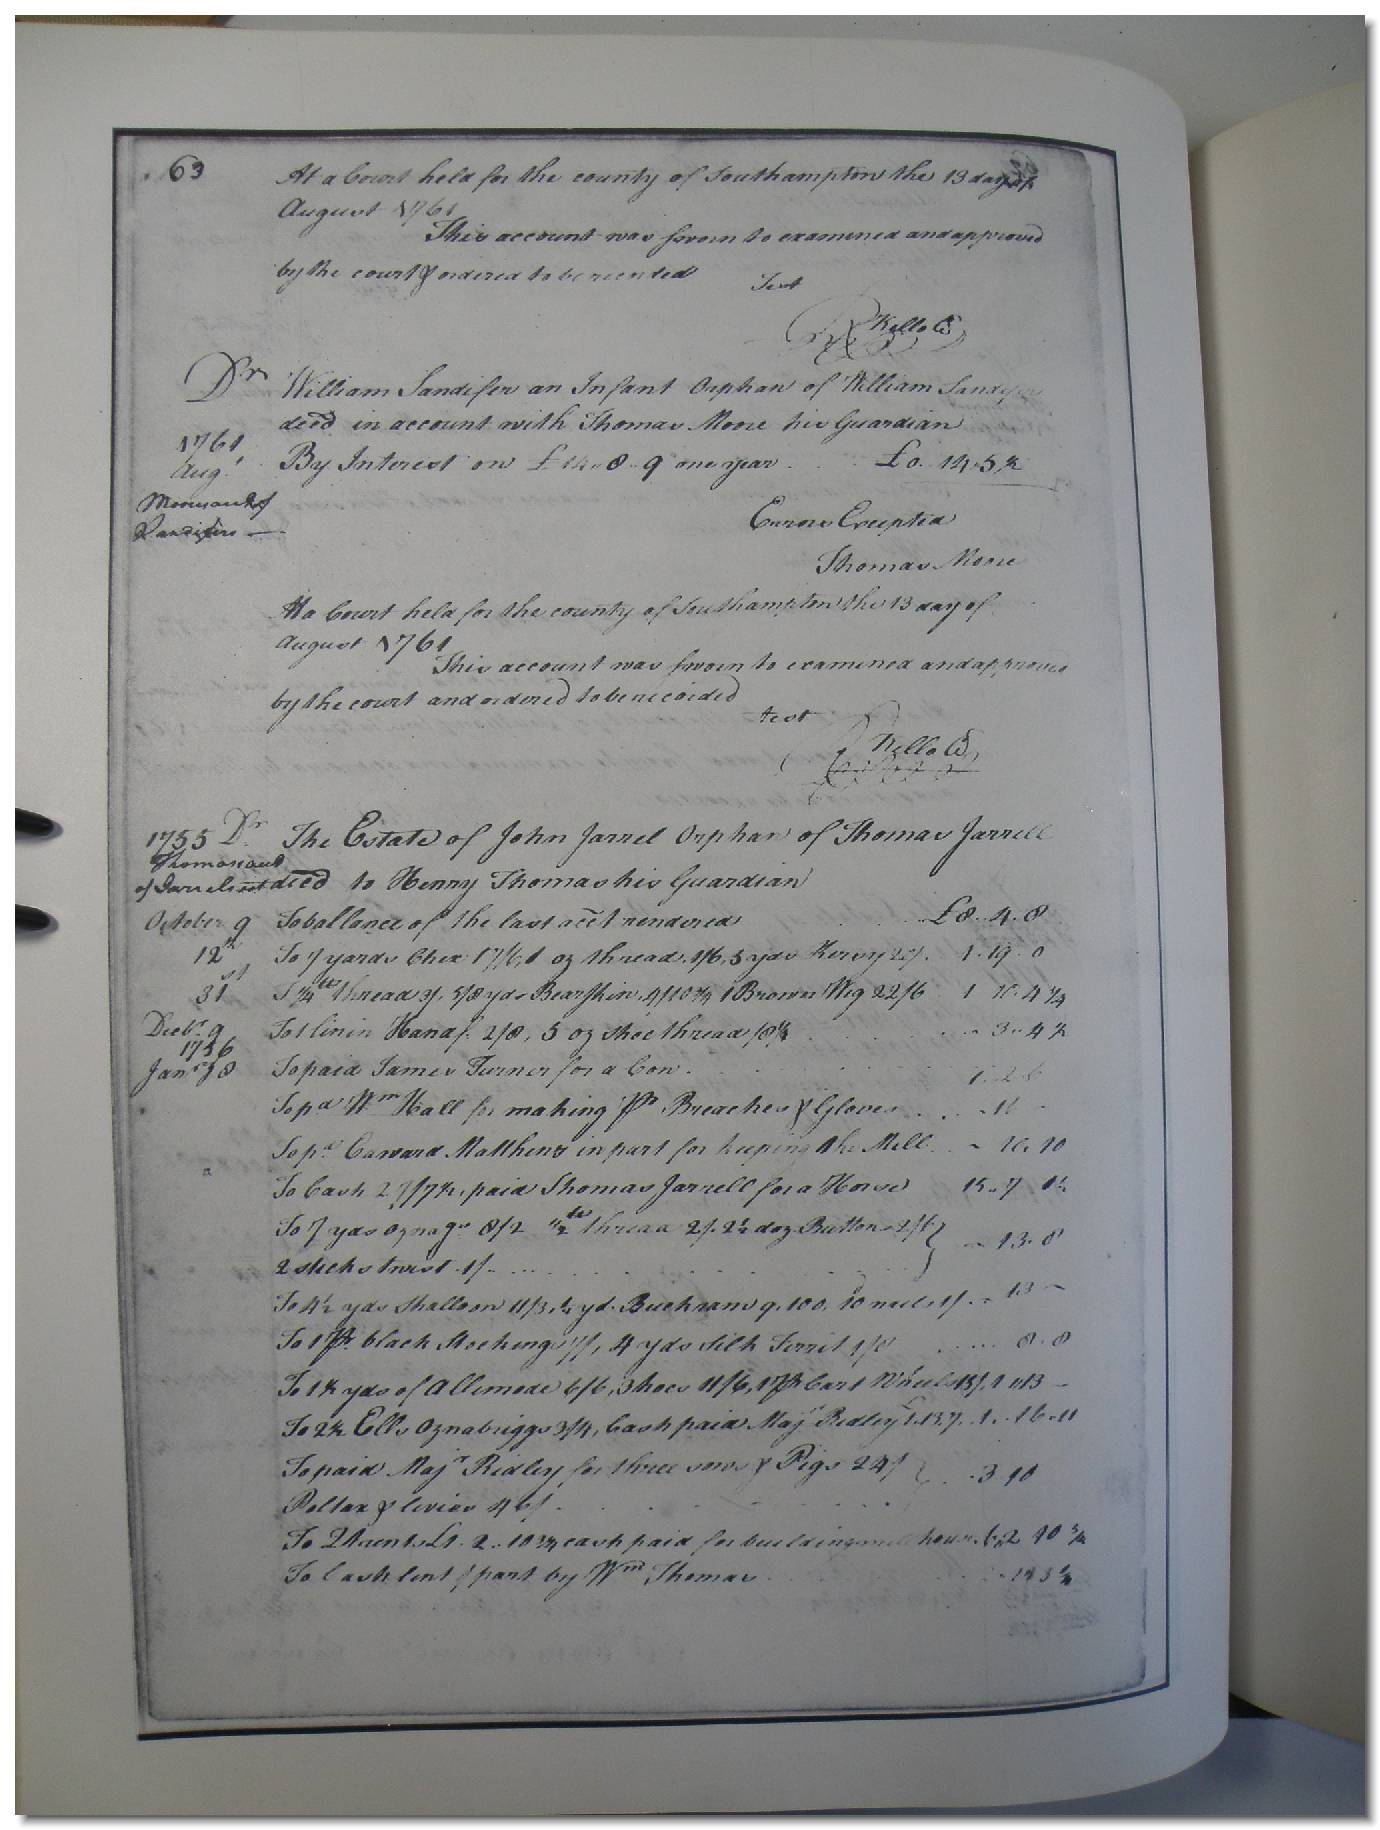 63
At a Court held for the county of Southampton the 13 day of
August 1761
This account was sworn to examined and approved
by the court & ordered to be recorded
Test
Kello Cl
Dr William Sandifer an Infant Orphan of William Sandifer
decd in account with Thomas Moore his Guardian
1761
Augt By Interest on £14..8..9 one year £0..14..5½
Moores acct of
Sandifers
Errors Excepted
Thomas Moore
At a Court held for the county of Southampton the 13 day of
August 1761
This account was sworn to examined and approved
by the court and ordered to be recorded
test
Kello Cl
1755 Dr The Estate of John Jarrel Orphan of Thomas Jarrell
Thomas acct
of Jarrels est decd to Henry Thomas his Guardian
October 9 To ballance of the last acct rendered £8..4..8
12th To 7 yards Chex 17/6, 1 oz thread 1/6, 5 yds Kersy 20/. 1..19..0
31st To ¼ lb thread 3/. 5/8 yds Bearskin 4/10¾ 1 Brown Wig 22/6 1 10..4¾
Decbr 9 To 1 linin Handf. 2/8, 5 oz shoe thread /8½ 3..4½
1756
Janry 8 To paid James Turner for a Cow 1..2..6
To pd Wm Hall for making pr Breaches & Gloves 11
To pd Edward Matthews in part for keeping the Mill 10
To Cash paid Thomas Jarrell for a Horse 15..7 1½
To 7 yds oznags 8/2 ½ lb thread 2/. 2½ doz Buttons 2/6
2 sticks twist 1/. 13..8
To 4½ yds Shalloon 11/3, ½ yd. Buckram 9. 100. 10 nails 1/. 13
To 1 pr black Stockings 7/, 4 yds silk Ferrit 1/8 8..8
To 1½ yds of Allemode 6/6, Shoes 11/6, 1 pr Cart Wheels 15/. 1 13
To 2½ Ells Oznabriggs 3/4, Cash paid Majr Ridley 1.13.7. 1..16..11
To paid Majr Ridley for three sows & Pigs 24/
Poltax & levies 46/. 3 10
To cash paid for building mill house 2 10¾
To Cash lent / part by Wm Thomas